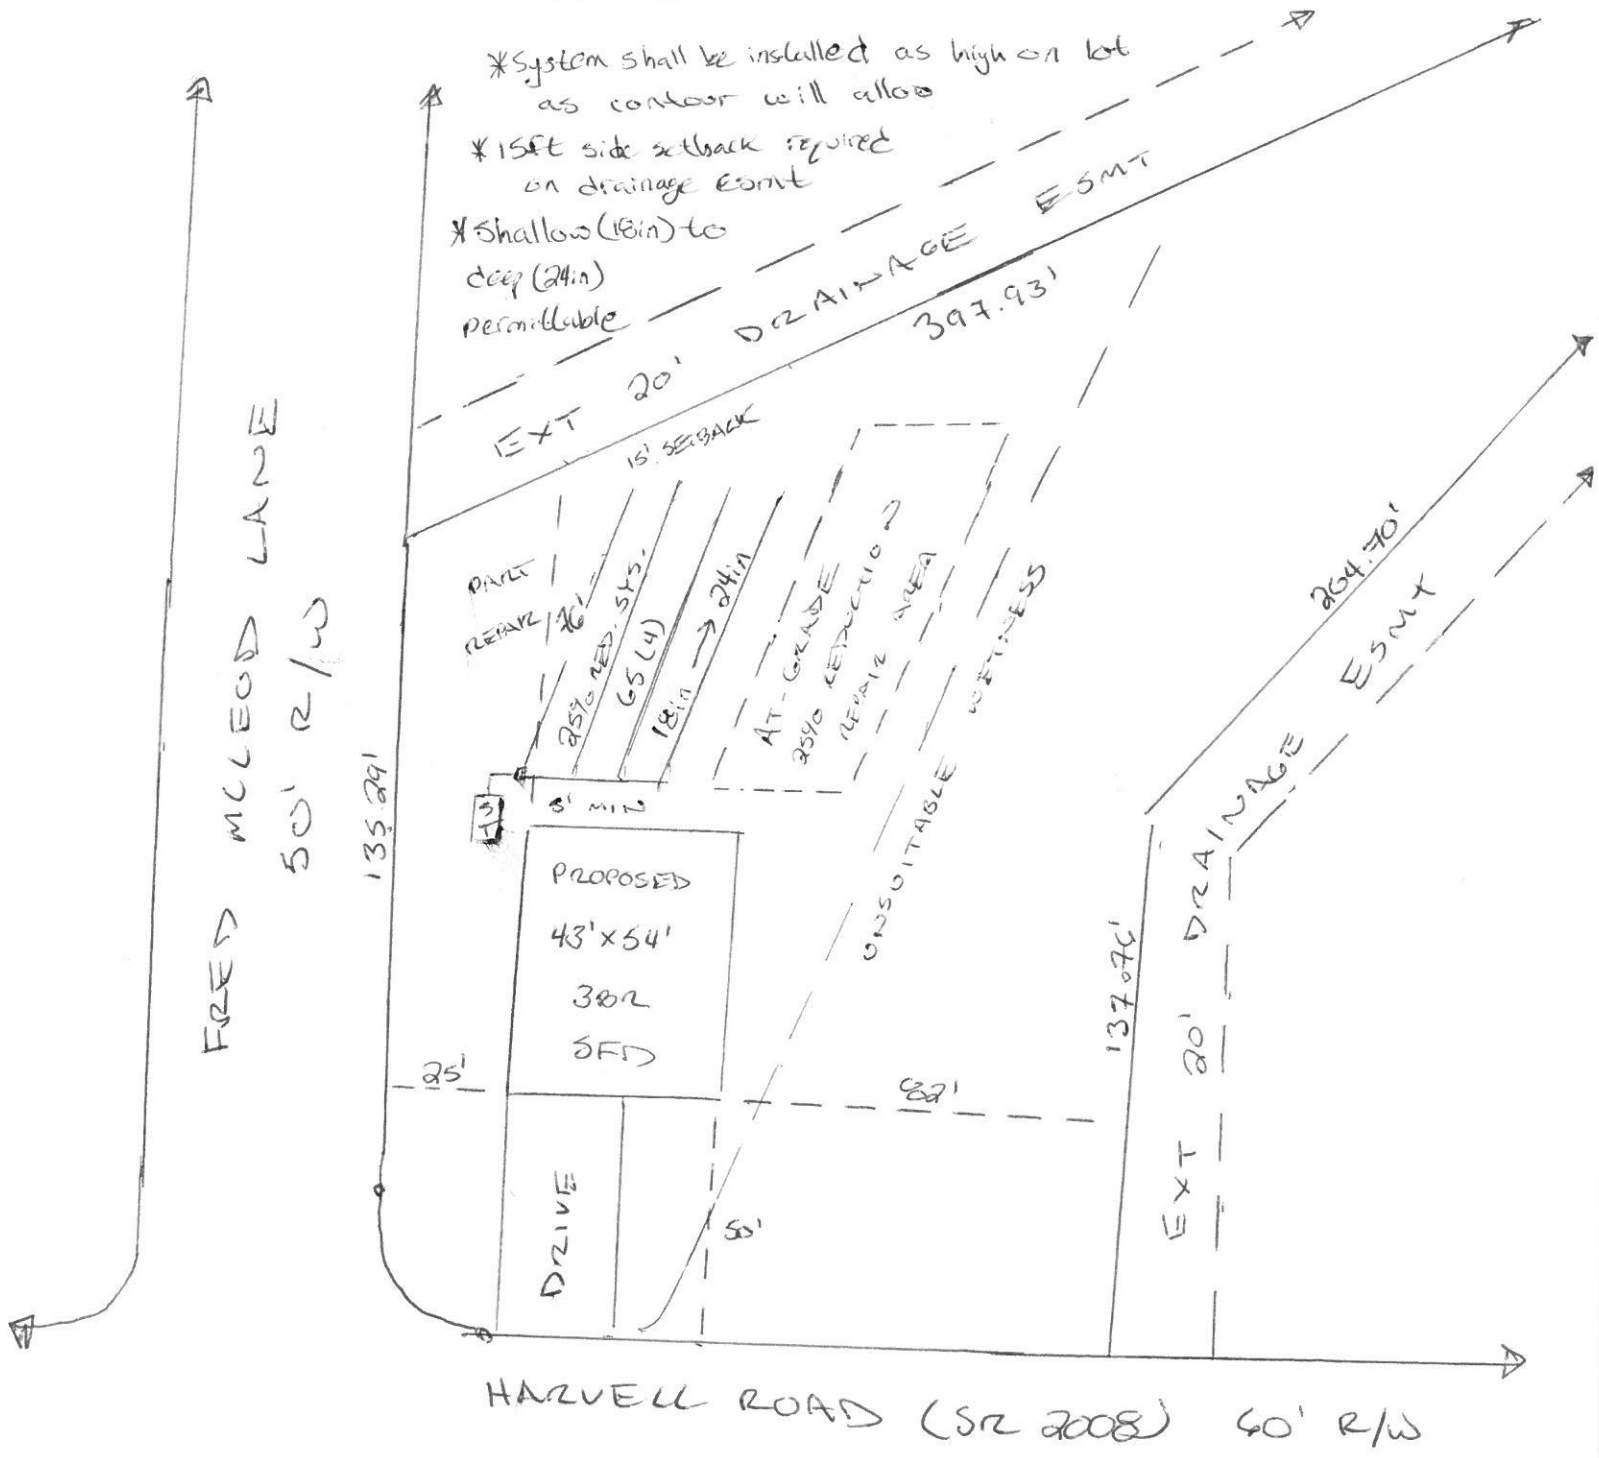 *System shall be installed as high on lot
as contour will allow
*15ft side setback required
on drainage Esmt
*Shallow (18in) to
deep (24in)
permittable
EXT 20' DRAINAGE ESMT
397.93'
15' SETBACK
FRED MCLEOD LANE
50' R/W
135.29'
PART
REPAIR
76'
25% RED. SYS.
65 (4)
18in → 24in
AT-GRADE
25% REDUCTION
REPAIR AREA
UNSUITABLE WETNESS
204.70'
EXT 20' DRAINAGE ESMT
137.76'
ST
5' MIN
PROPOSED
43'x54'
3BR
SFD
25'
82'
DRIVE
50'
HARVELL ROAD (SR 2008) 60' R/W